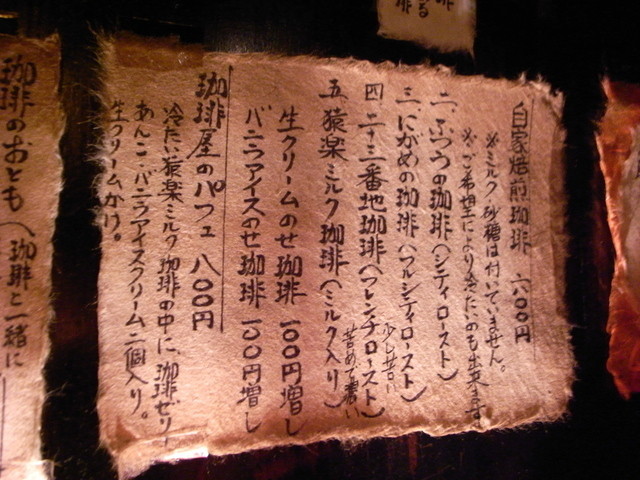 自家焙煎珈琲 六〇〇円
※ミルク、砂糖は付いていません。
※ご希望により冷たいのも出来ます
二、ふつうの珈琲(シティロースト)
三、にがめの珈琲(フルシティロースト)
少し苦い
四、二十三番地珈琲(フレンチロースト)
苦めで濃い
五、猿楽ミルク珈琲(ミルク入り)
生クリームのせ珈琲 一〇〇円増し
バニラアイスのせ珈琲 一〇〇円増し
珈琲屋のパフェ 八〇〇円
冷たい猿楽ミルク珈琲の中に、珈琲ゼリー
あんこ、バニラアイスクリーム二個入り。
生クリームがけ。
珈琲のおとも(珈琲と一緒に